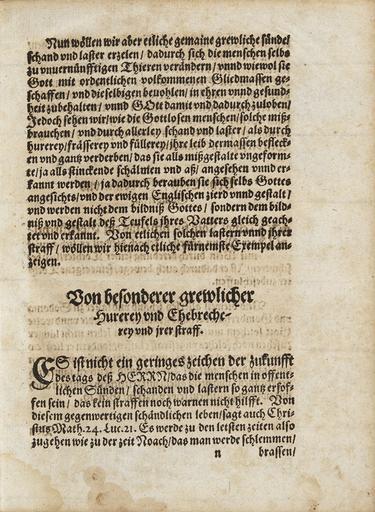 Nun wöllen wir aber etliche gemaine grewliche sünde/
schand vnd laster erzelen/ dadurch sich die menschen selbs
zu vnuernünfftigen Thieren verändern/ vnnd wiewol sie
Gott mit ordentlichen volkommenen Gliedmassen ge-
schaffen/ vnd dieselbigen beuohlen/ in ehren vnnd gesund-
heit zubehalten/ vnnd GOtt damit vnd dadurch zuloben/
Jedoch sehen wir/ wie die Gottlosen menschen/ solche miß-
brauchen/ vnd durch allerley schand vnd laster/ als durch
hurerey/ frässerey vnd füllerey/ ihre leib dermassen befleck-
en vnd gantz verderben/ das sie als mißgestalte vngeform-
te/ ja als stinckende vnd aß/ angesehen vnnd er-
kannt werden/ ja dadurch berauben sie sich selbs Gottes
angesichts/ vnd der ewigen Englischen zierd vnnd gestalt/
vnd werden nicht dem bildniß Gottes/ sondern dem bild-
niß vnd gestalt deß Teufels ihres Vatters gleich geach-
tet vnd erkannt. Von etlichen solchen lastern vnnd jhrer
straff/ wöllen wir hienach etliche fürnemste Exempel an-
zeigen.
Von besonderer grewlicher
Hurerey vnd Ehebreche-
rey vnd jrer straff.
ES ist nicht ein geringes zeichen der zukunfft
des tags deß HERRN/ das die menschen in offent-
lichen Sünden/ schanden vnd lastern so gantz ersof-
fen sein/ das kein straffen noch warnen nicht hilfft. Von
diesem gegenwertigen schändlichen leben/ sagt auch Chri-
stus Math. 24. Luc. 21. Es werde zu den letsten zeiten also
zugehen wie zu der zeit Noach/ das man werde schlemmen/
n brassen/